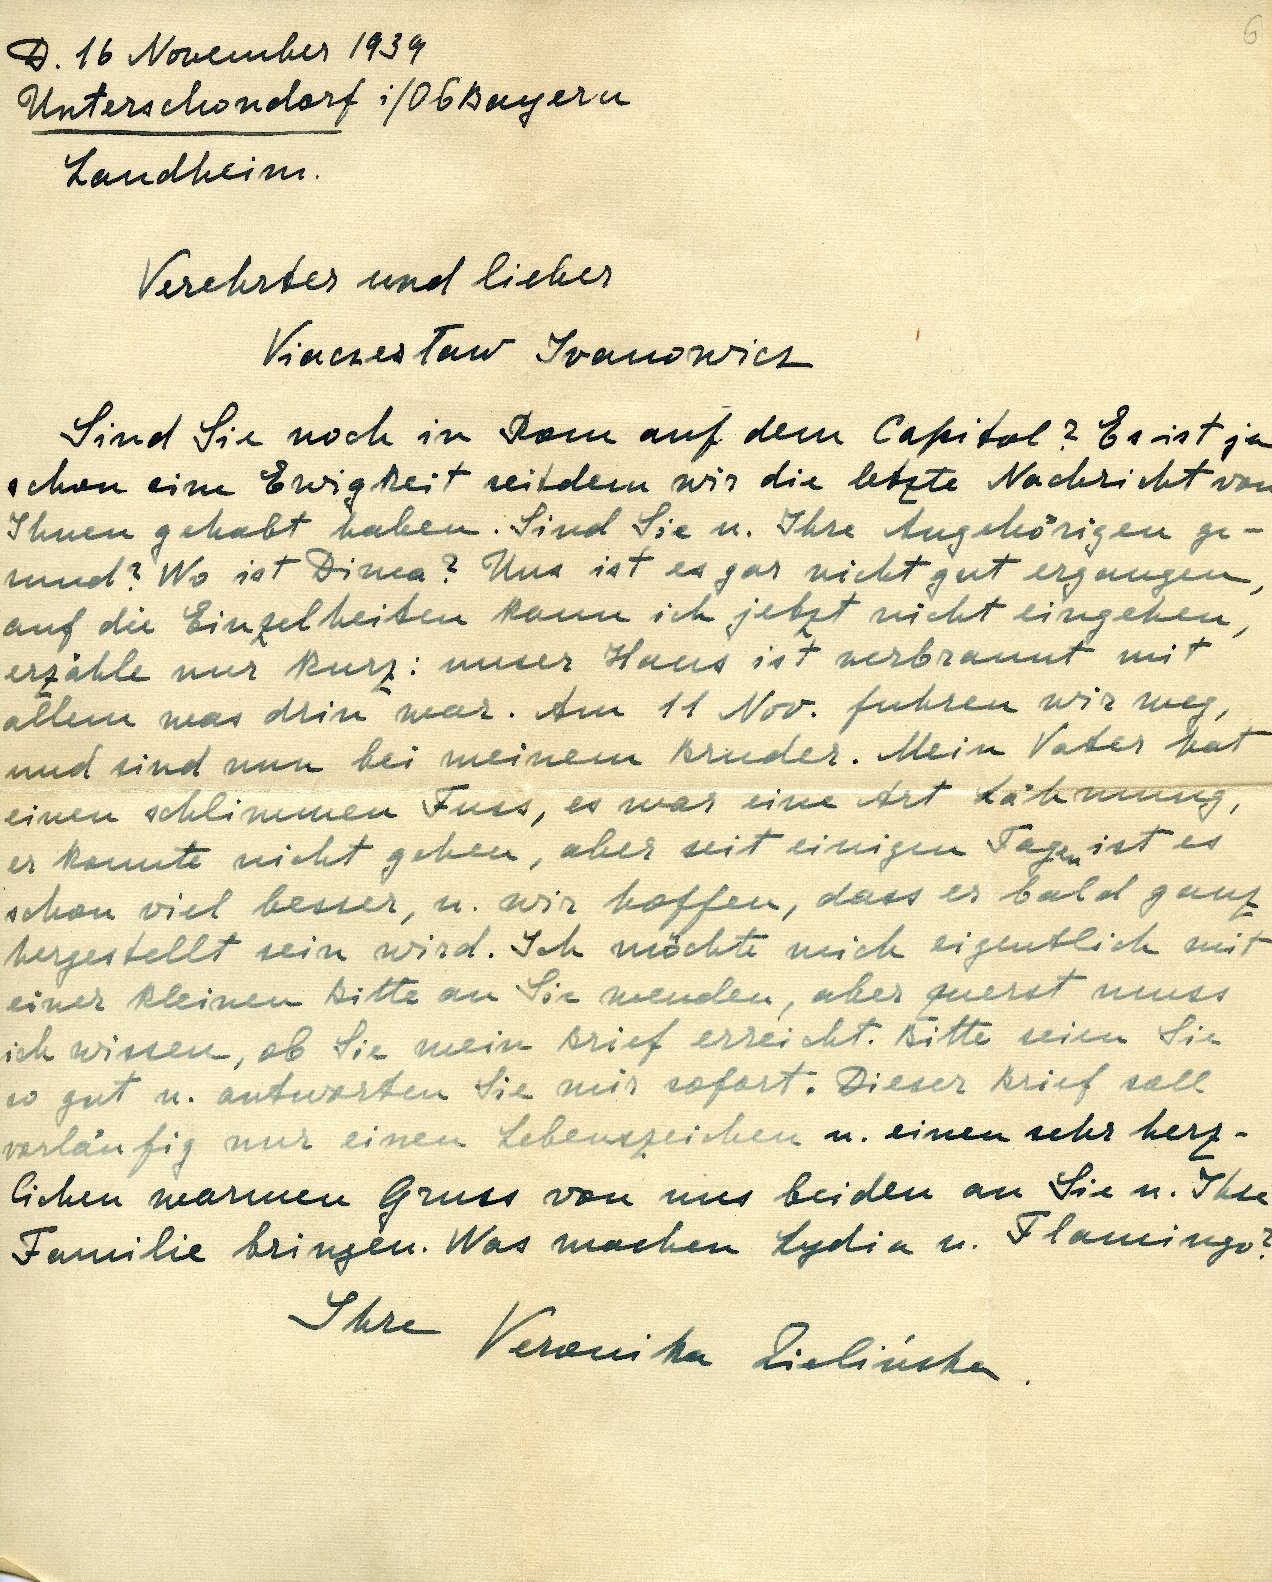 6
D. 16 November 1939
Unterschondorf i/ObBayern
Landheim.
Verehrter und lieber
Viaczesław Ivanowicz
Sind Sie noch in Rom auf dem Capitol? Es ist ja
schon eine Ewigkeit seitdem wir die letzte Nachricht von
Ihnen gehabt haben. Sind Sie u. Ihre Angehörigen ge-
sund? Wo ist Dima? Uns ist es gar nicht gut ergangen,
auf die Einzelheiten kann ich jetzt nicht eingehen,
erzähle nur kurz: unser Haus ist verbrannt mit
allem was drin war. Am 11 Nov. fuhren wir weg,
und sind nun bei meinem Bruder. Mein Vater hat
einen schlimmen Fuss, es war eine Art Lähmung,
er konnte nicht gehen, aber seit einigen Tagen ist es
schon viel besser, u. wir hoffen, dass er bald ganz
hergestellt sein wird. Ich möchte mich eigentlich mit
einer kleinen Bitte an Sie wenden, aber zuerst muss
ich wissen, ob Sie mein Brief erreicht. Bitte seien Sie
so gut u. antworten Sie mir sofort. Dieser Brief soll
vorläufig nur einen Lebenszeichen u. einen sehr herz-
lichen warmen Gruss von uns beiden an Sie u. Ihre
Familie bringen. Was machen Lydia u. Flamingo?
Ihre Veronika Zielińska.